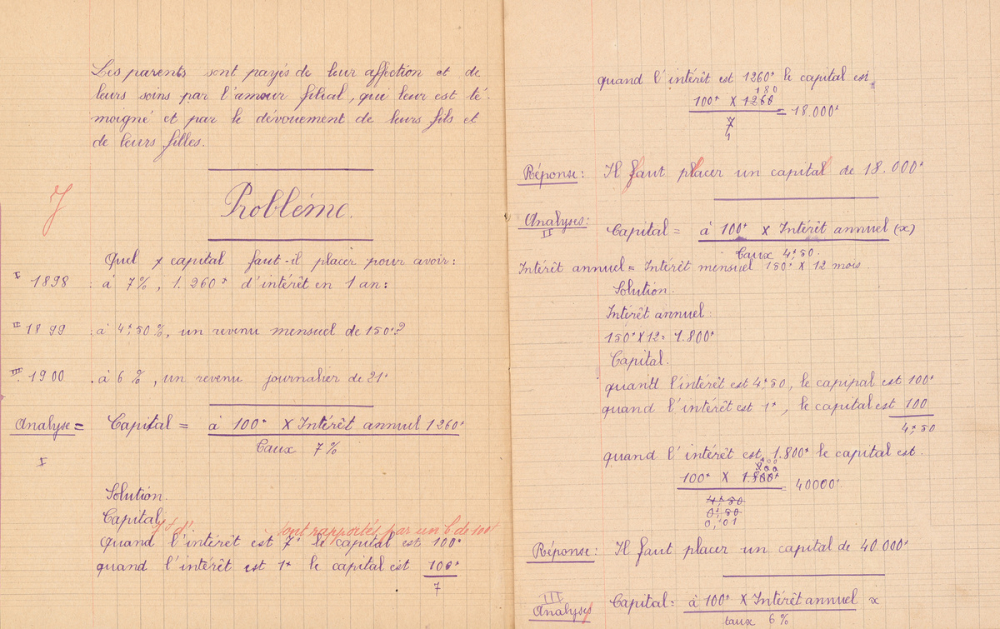 Les parents sont payés de leur affection et de
leurs soins par l'amour filial, qui leur est té
moigné et par le dévouement de leurs fils et
de leurs filles.
Problème.
Quel capital faut-il placer pour avoir:
I 1898 à 7%, 1.260f d'intérêt en 1 an:
II 1899 à 4f,50%, un revenu mensuel de 150f?
III 1900 à 6%, un revenu journalier de 21f
Analyse = Capital = à 100f X Intérêt annuel 1260f
I Taux 7%
Solution.
Capital
7f d' sont rapportés par un C de 100f
Quand l'intérêt est 7f le capital est 100f
quand l'intérêt est 1f le capital est 100f
7
quand l'intérêt est 1260f le capital est
180
100f X 1260 = 18.000f
7
Réponse: Il faut placer un capital de 18.000f
Analyses: Capital = à 100f X Intérêt annuel (x)
II Taux 4f,50.
Intérêt annuel = Intérêt mensuel 150f X 12 mois
Solution.
Intérêt annuel
150f X 12 = 1.800f
Capital.
quantd l'intérêt est 4f,50, le capipal est 100f
quand l'intérêt est 1f, le capital est 100
4f,50
quand l'intérêt est 1.800f le capital est
100f X 1.800f = 40000f
4f,50
0,50
0,01
Réponse: Il faut placer un capital de 40.000f
III
Analyse Capital: à 100f X Intérêt annuel x
taux 6%